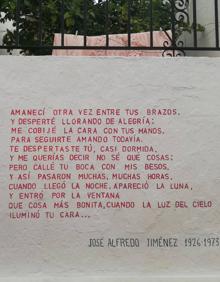 AMANECÍ OTRA VEZ ENTRE TUS BRAZOS,
Y DESPERTÉ LLORANDO DE ALEGRÍA;
ME COBIJÉ LA CARA CON TUS MANOS,
PARA SEGUIRTE AMANDO TODAVÍA.
TE DESPERTASTE TÚ, CASI DORMIDA,
Y ME QUERÍAS DECIR NO SÉ QUÉ COSAS;
PERO CALLÉ TU BOCA CON MIS BESOS,
Y ASÍ PASARON MUCHAS, MUCHAS HORAS,
CUANDO LLEGÓ LA NOCHE, APARECIÓ LA LUNA,
Y ENTRÓ POR LA VENTANA
QUE COSA MÁS BONITA, CUANDO LA LUZ DEL CIELO
ILUMINÓ TU CARA...
JOSÉ ALFREDO JIMÉNEZ 1926-1973